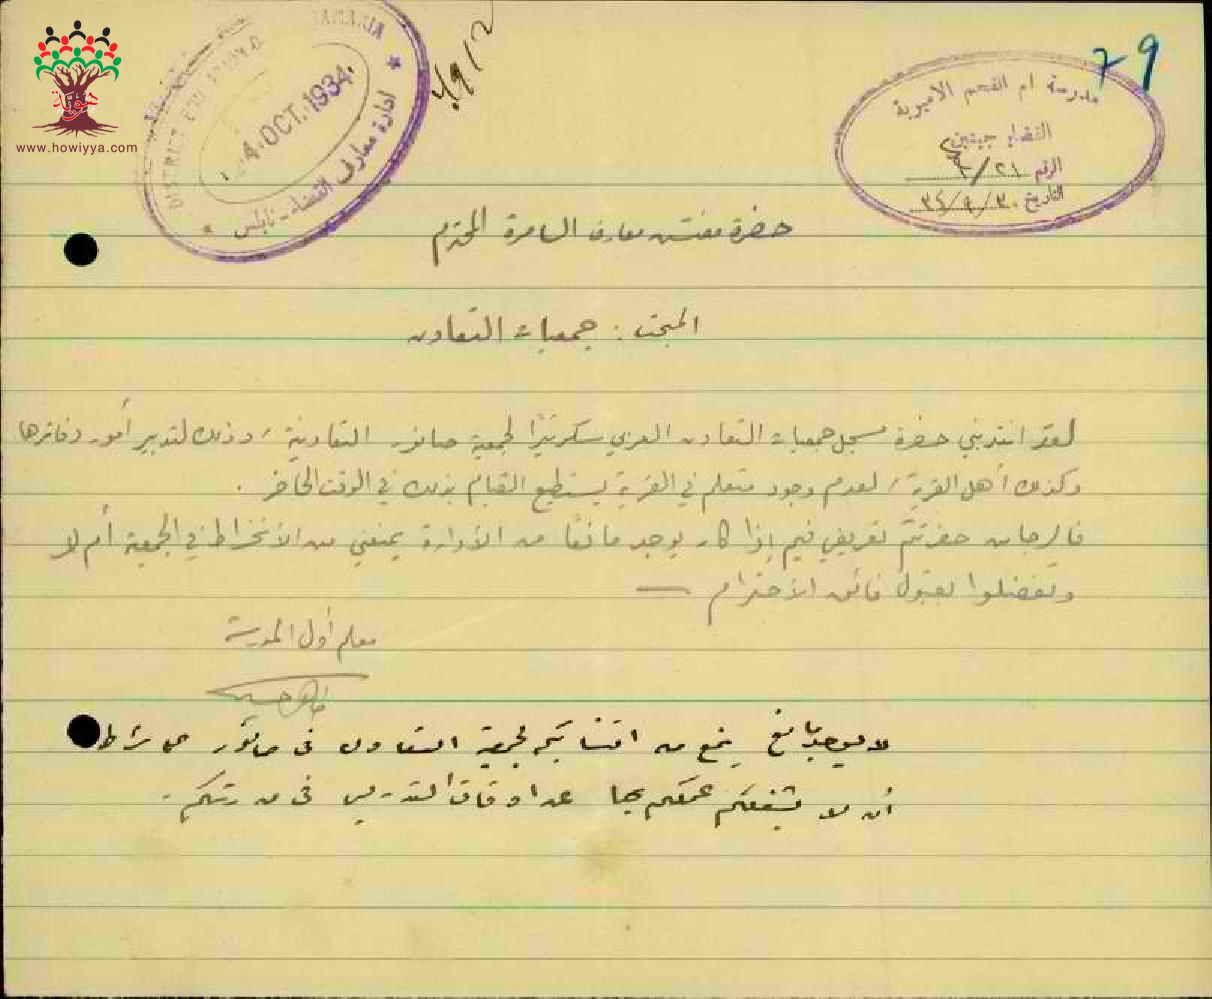 www.howiyya.com
DISTRICT EDUCATION O SAMARIA
4.OCT.1934
ادارة معارف القضاء - نابلس
79
مدرسة ام الفحم الاميرية
القضاء جينين
الرقم ٢١/
التاريخ ٣٠/٩/٣٤
حضرة مفتش معارف السامرة المحترم
المبحث : جمعيات التعاون
لقد انتدبني حضرة مسجل جمعيات التعاون العربي سكرتيرًا لجمعية صانور التعاونية، وذلك لتدبير أمور دفاترها
وكذلك أهل القرية، لعدم وجود متعلم في القرية يستطيع القيام بذلك في الوقت الحاضر .
فالرجا من حضرتكم تعريفي فيم إذا كان يوجد مانعًا من الأدارة يمنعني من الأنخراط في الجمعية أم لا
وتفضلوا بقبول فائق الاحترام —
معلم أول المدرسة
لا يوجد مانع يمنع من انتسابكم لجمعية التعاون في صانور على شرط
أن لا يشغلكم عملكم بها عن اوقات التدريس في مدرستكم .